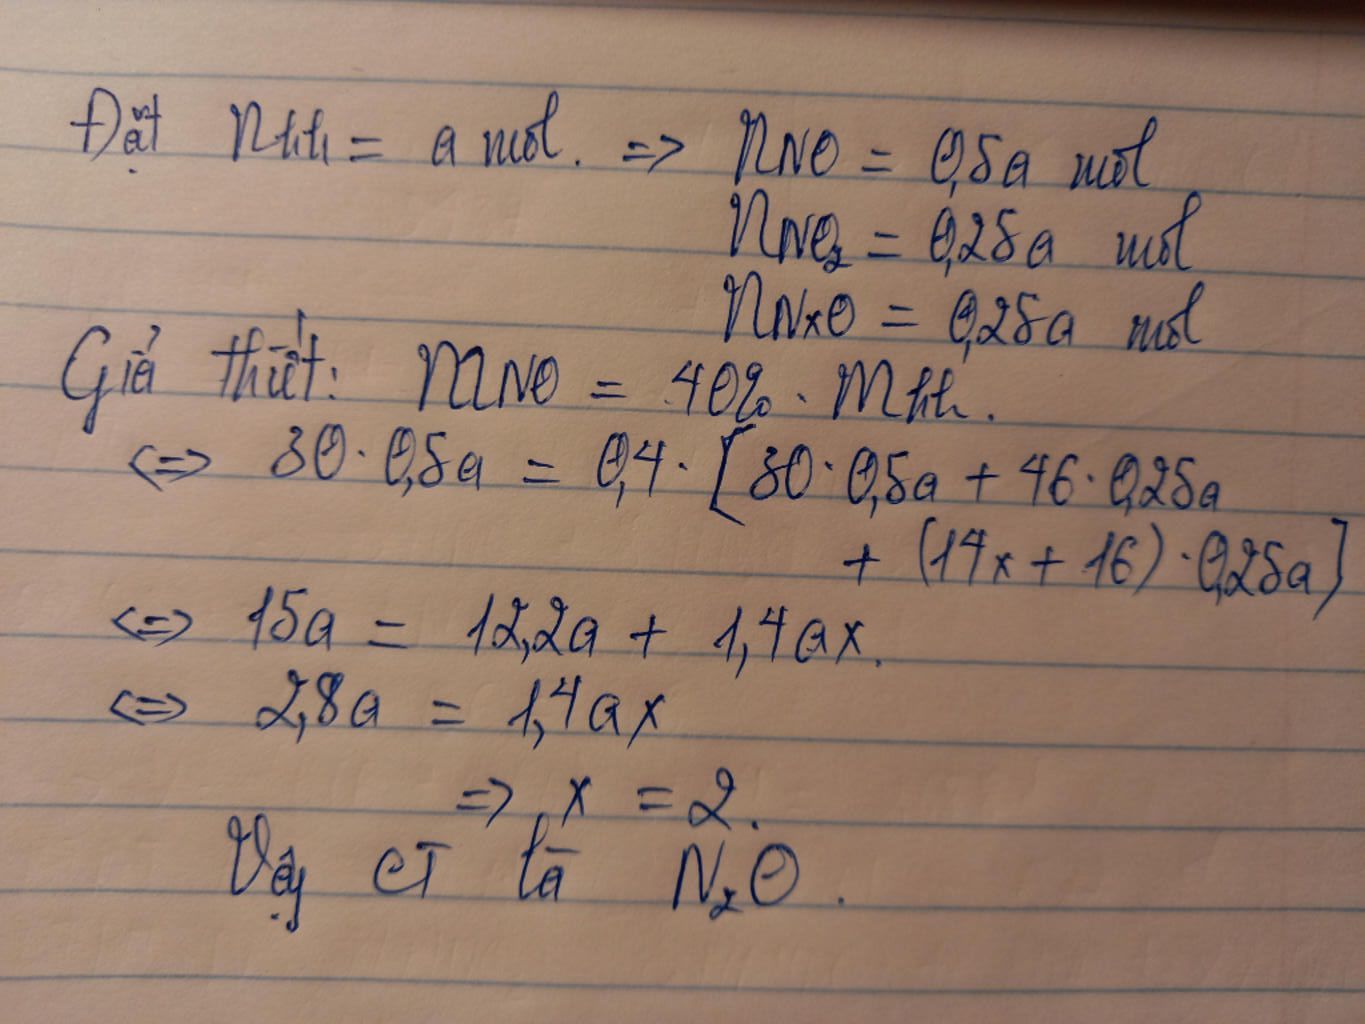 Đặt nhh = a mol. => nNO = 0,5a mol
nNO2 = 0,25a mol
nNxO = 0,25a mol
Giả thiết: mNO = 40% . mhh.
<=> 30 . 0,5a = 0,4 . [30 . 0,5a + 46 . 0,25a
+ (14x + 16) . 0,25a]
<=> 15a = 12,2a + 1,4ax.
<=> 2,8a = 1,4ax
=> x = 2.
Vậy CT là N2O.